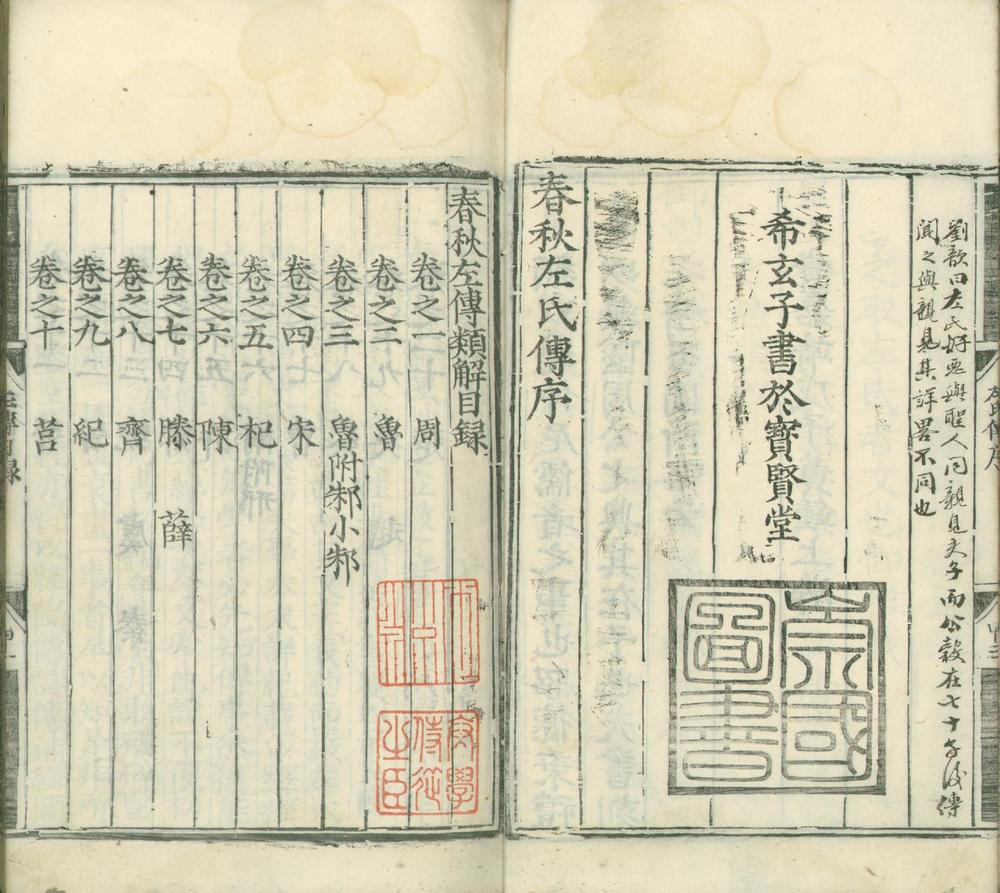 劉歆曰左氏好惡與聖人同親見夫子而公穀在七十子後傳
聞之與親見其詳畧不同也
希玄子書於寶賢堂
崇國
圖書
春秋左氏傳序
春秋左傳類解目録
卷之一 周
卷之二 魯
卷之三 魯附邾小邾
卷之四 宋
卷之五 杞
卷之六 陳
卷之七 滕 薛
卷之八 齊
卷之九 紀
卷之十 莒
文學
侍從
之臣